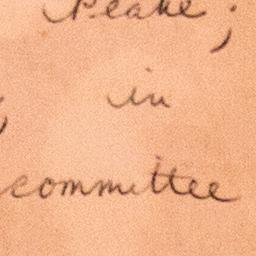 Peake;
in
committee